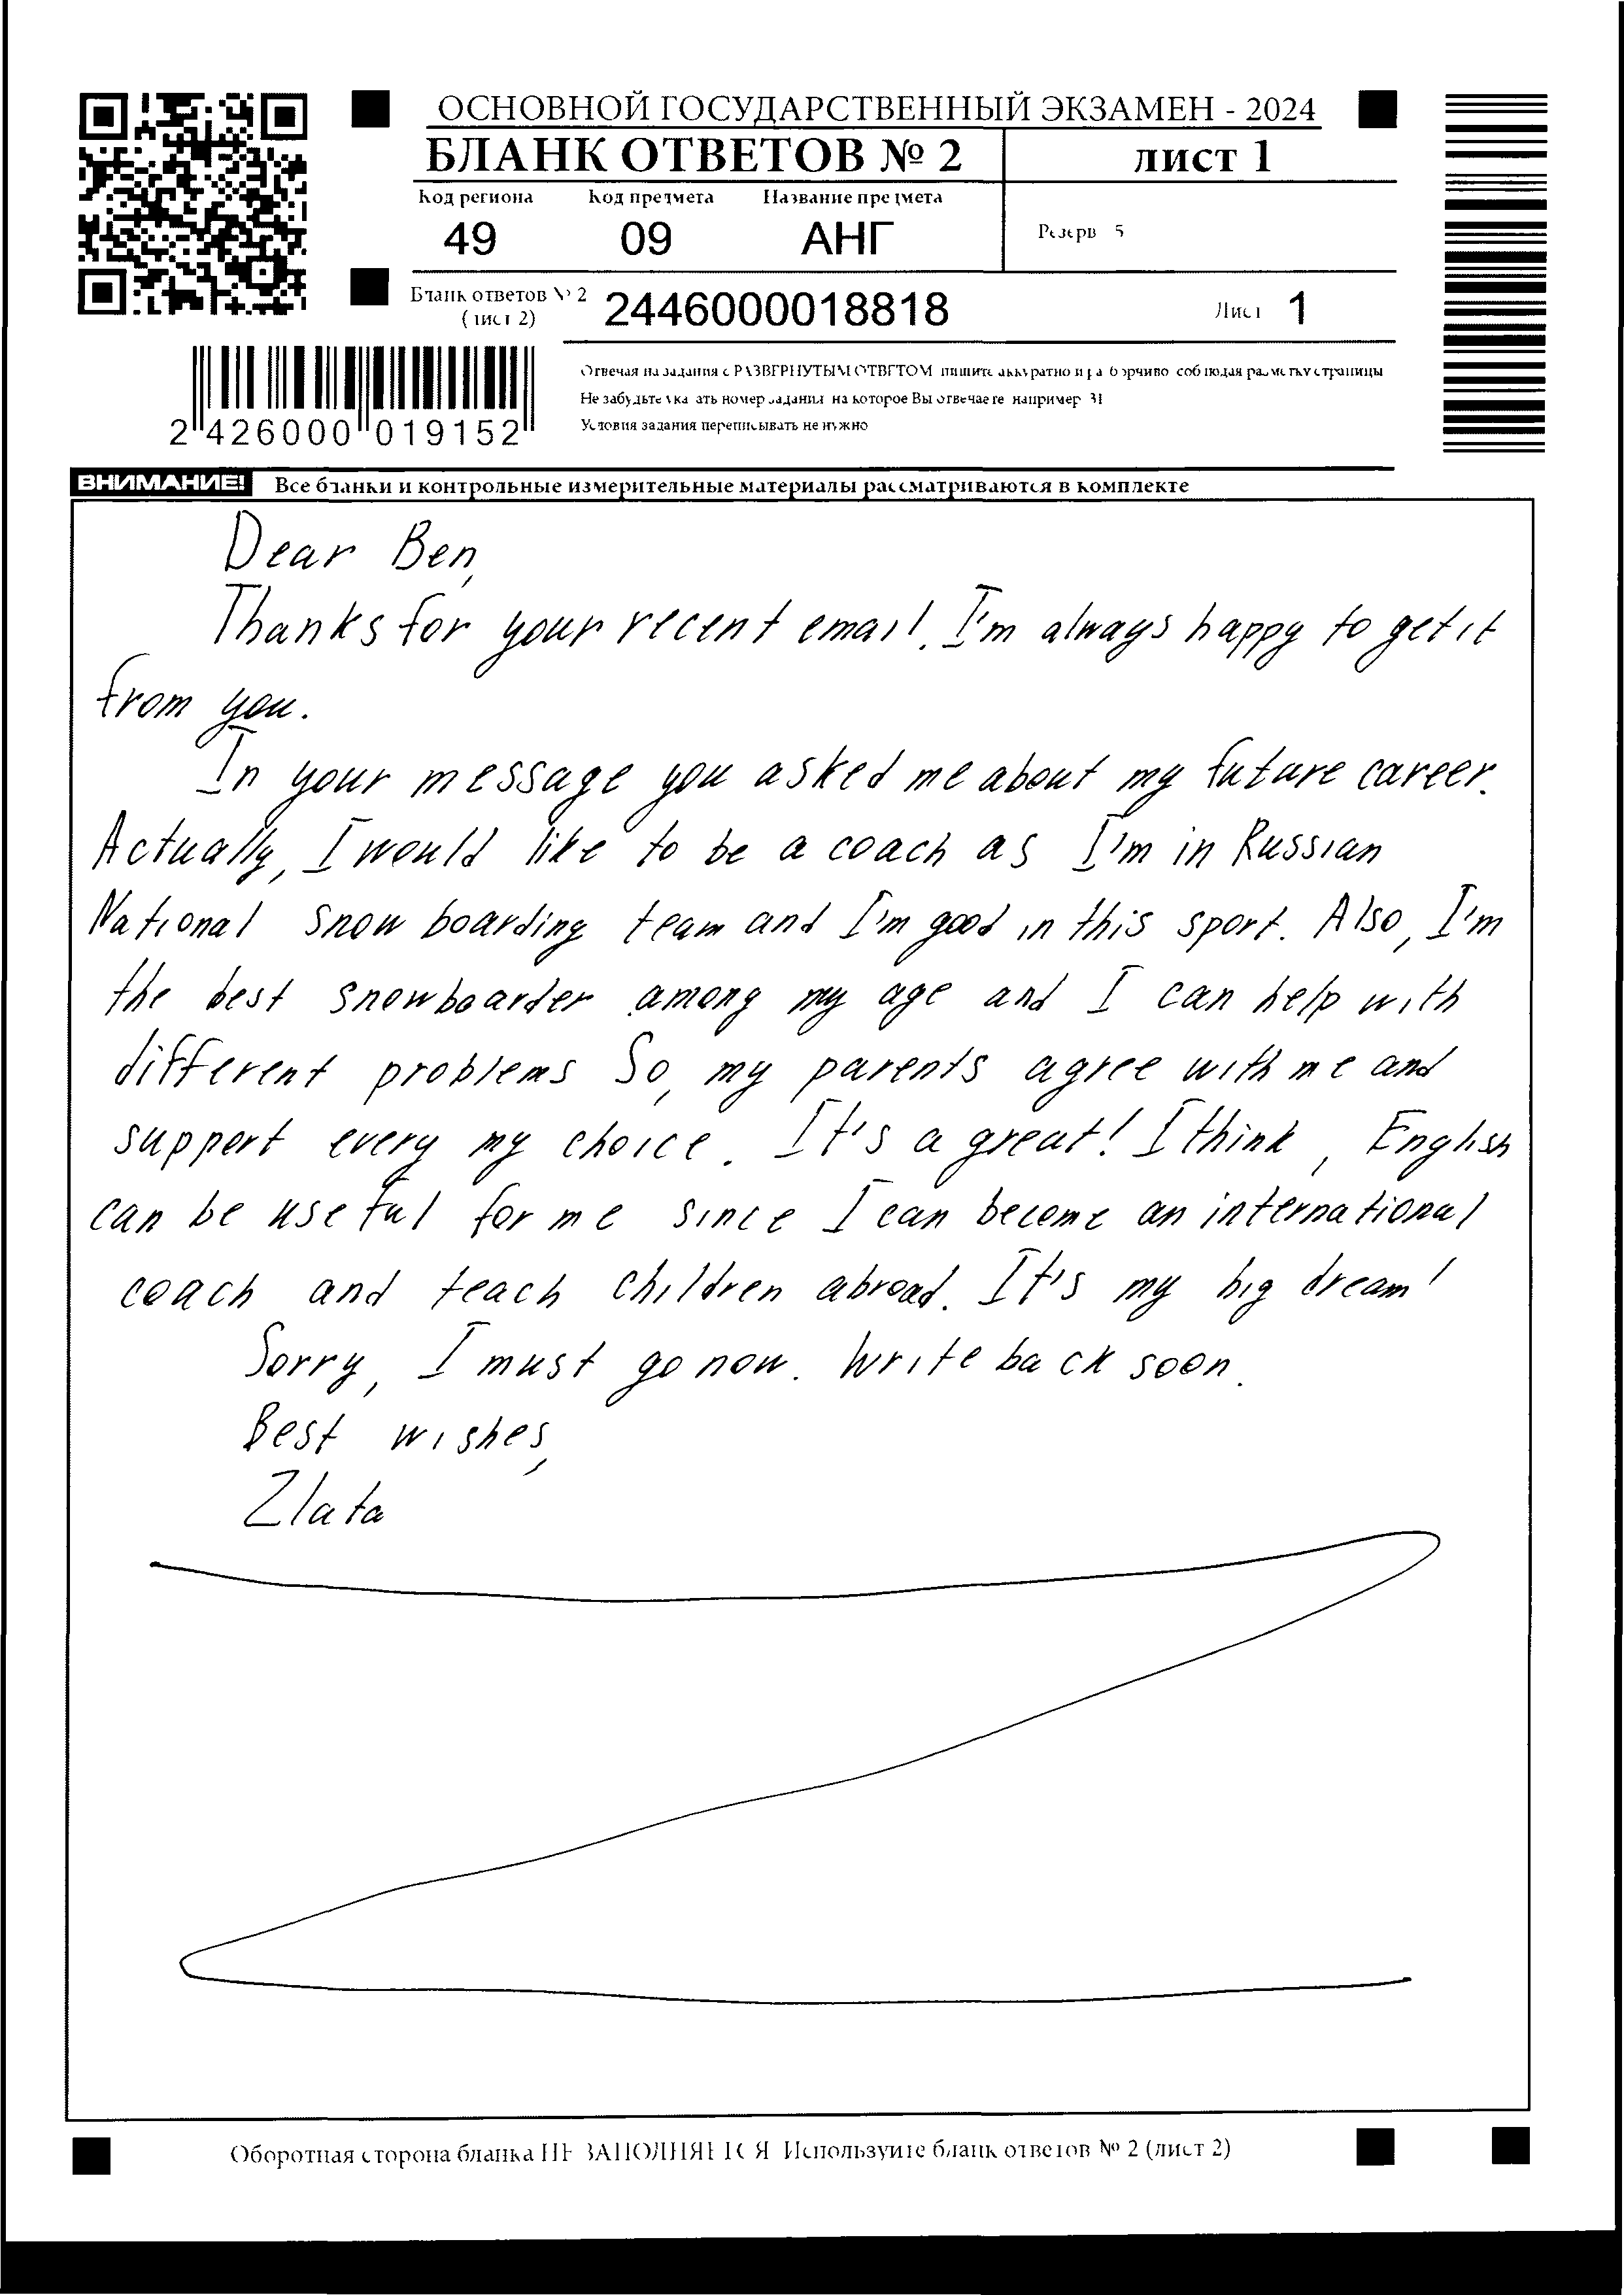 ОСНОВНОЙ ГОСУДАРСТВЕННЫЙ ЭКЗАМЕН - 2024
БЛАНК ОТВЕТОВ № 2
лист 1
Код региона Код предмета Название предмета
49 09 АНГ
Резерв 5
Бланк ответов № 2
(лист 2)
2446000018818
Лист 1
2 426000 019152
Отвечая на задания с РАЗВЕРНУТЫМ ОТВЕТОМ пишите аккуратно и разборчиво соблюдая разметку страницы
Не забудьте указать номер задания на которое Вы отвечаете например 31
Условия задания переписывать не нужно
ВНИМАНИЕ! Все бланки и контрольные измерительные материалы рассматриваются в комплекте
Dear Ben,
Thanks for your recent email. I'm always happy to get it
from you.
In your message you asked me about my future career.
Actually, I would like to be a coach as I'm in Russian
National snow boarding team and I'm good in this sport. Also, I'm
the best snowboarder among my age and I can help with
different problems So, my parents agree with me and
support every my choice. It's a great! I think, English
can be useful for me since I can become an international
coach and teach children abroad. It's my big dream!
Sorry, I must go now. Write back soon.
Best wishes,
Zlata
Оборотная сторона бланка НЕ ЗАПОЛНЯЕТСЯ Используйте бланк ответов № 2 (лист 2)